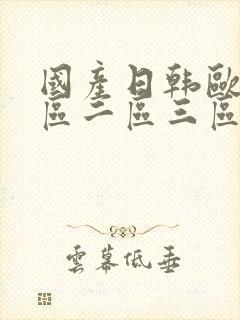 國產日韩歐
區二區三區
雲幕低垂